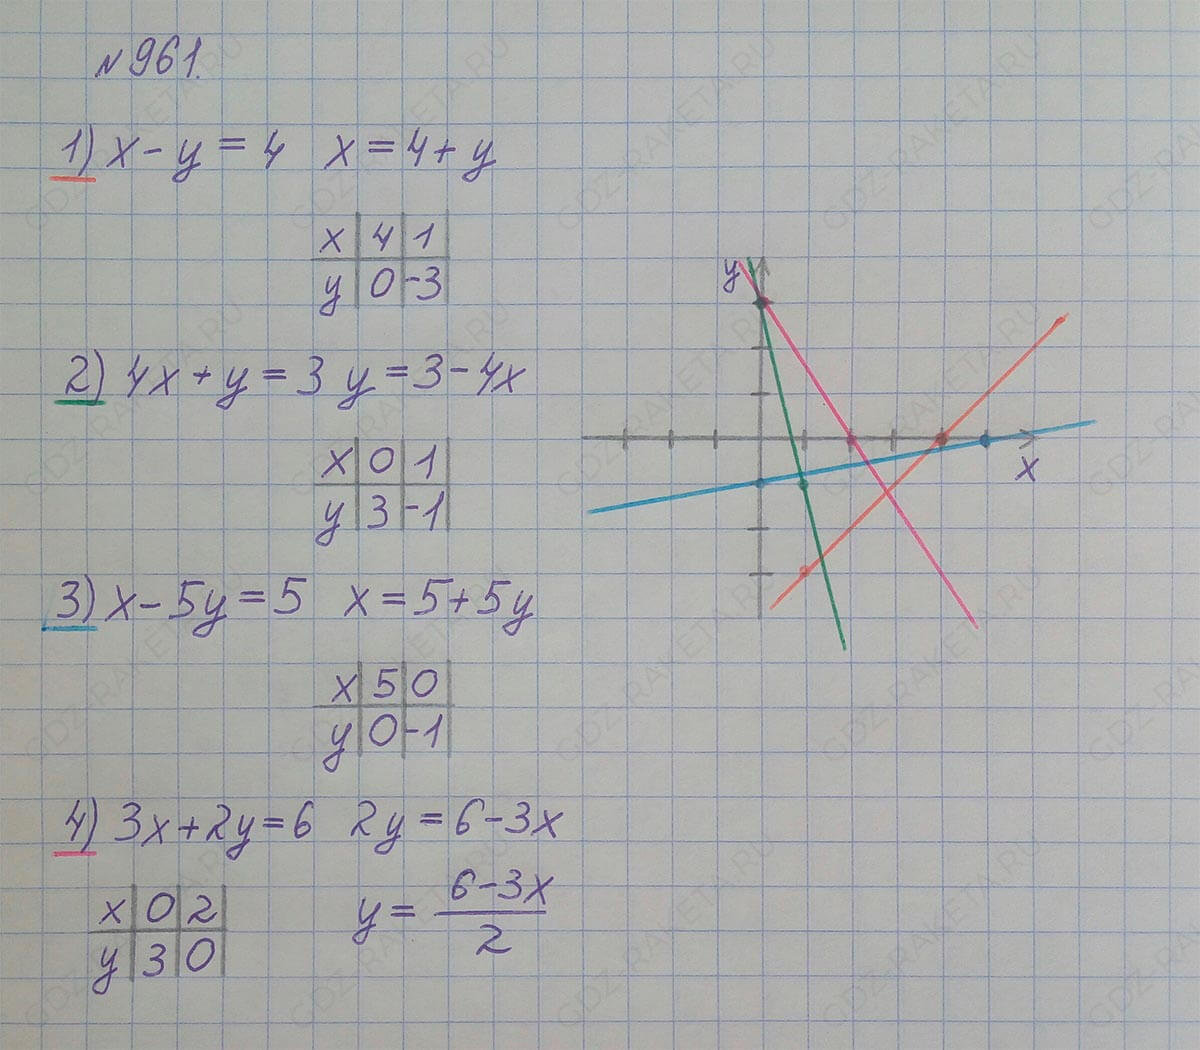 №961.
1) x - y = 4   x = 4 + y
x | 4 | 1
y | 0 | -3
2) 4x + y = 3   y = 3 - 4x
x | 0 | 1
y | 3 | -1
3) x - 5y = 5   x = 5 + 5y
x | 5 | 0
y | 0 | -1
4) 3x + 2y = 6   2y = 6 - 3x
x | 0 | 2
y | 3 | 0
y = (6 - 3x)/2
y
x
GDZ-RAKETA.RU